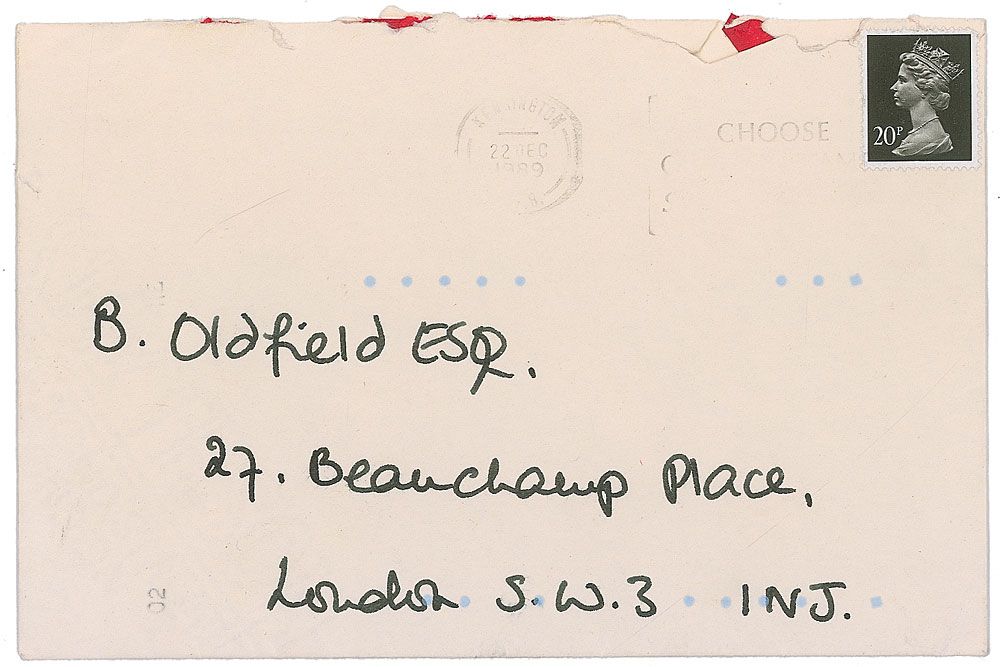 KENSINGTON
22 DEC
1989
CHOOSE
20P
B. Oldfield ESQ.
27. Beauchamp Place,
London S.W.3 1NJ.
02